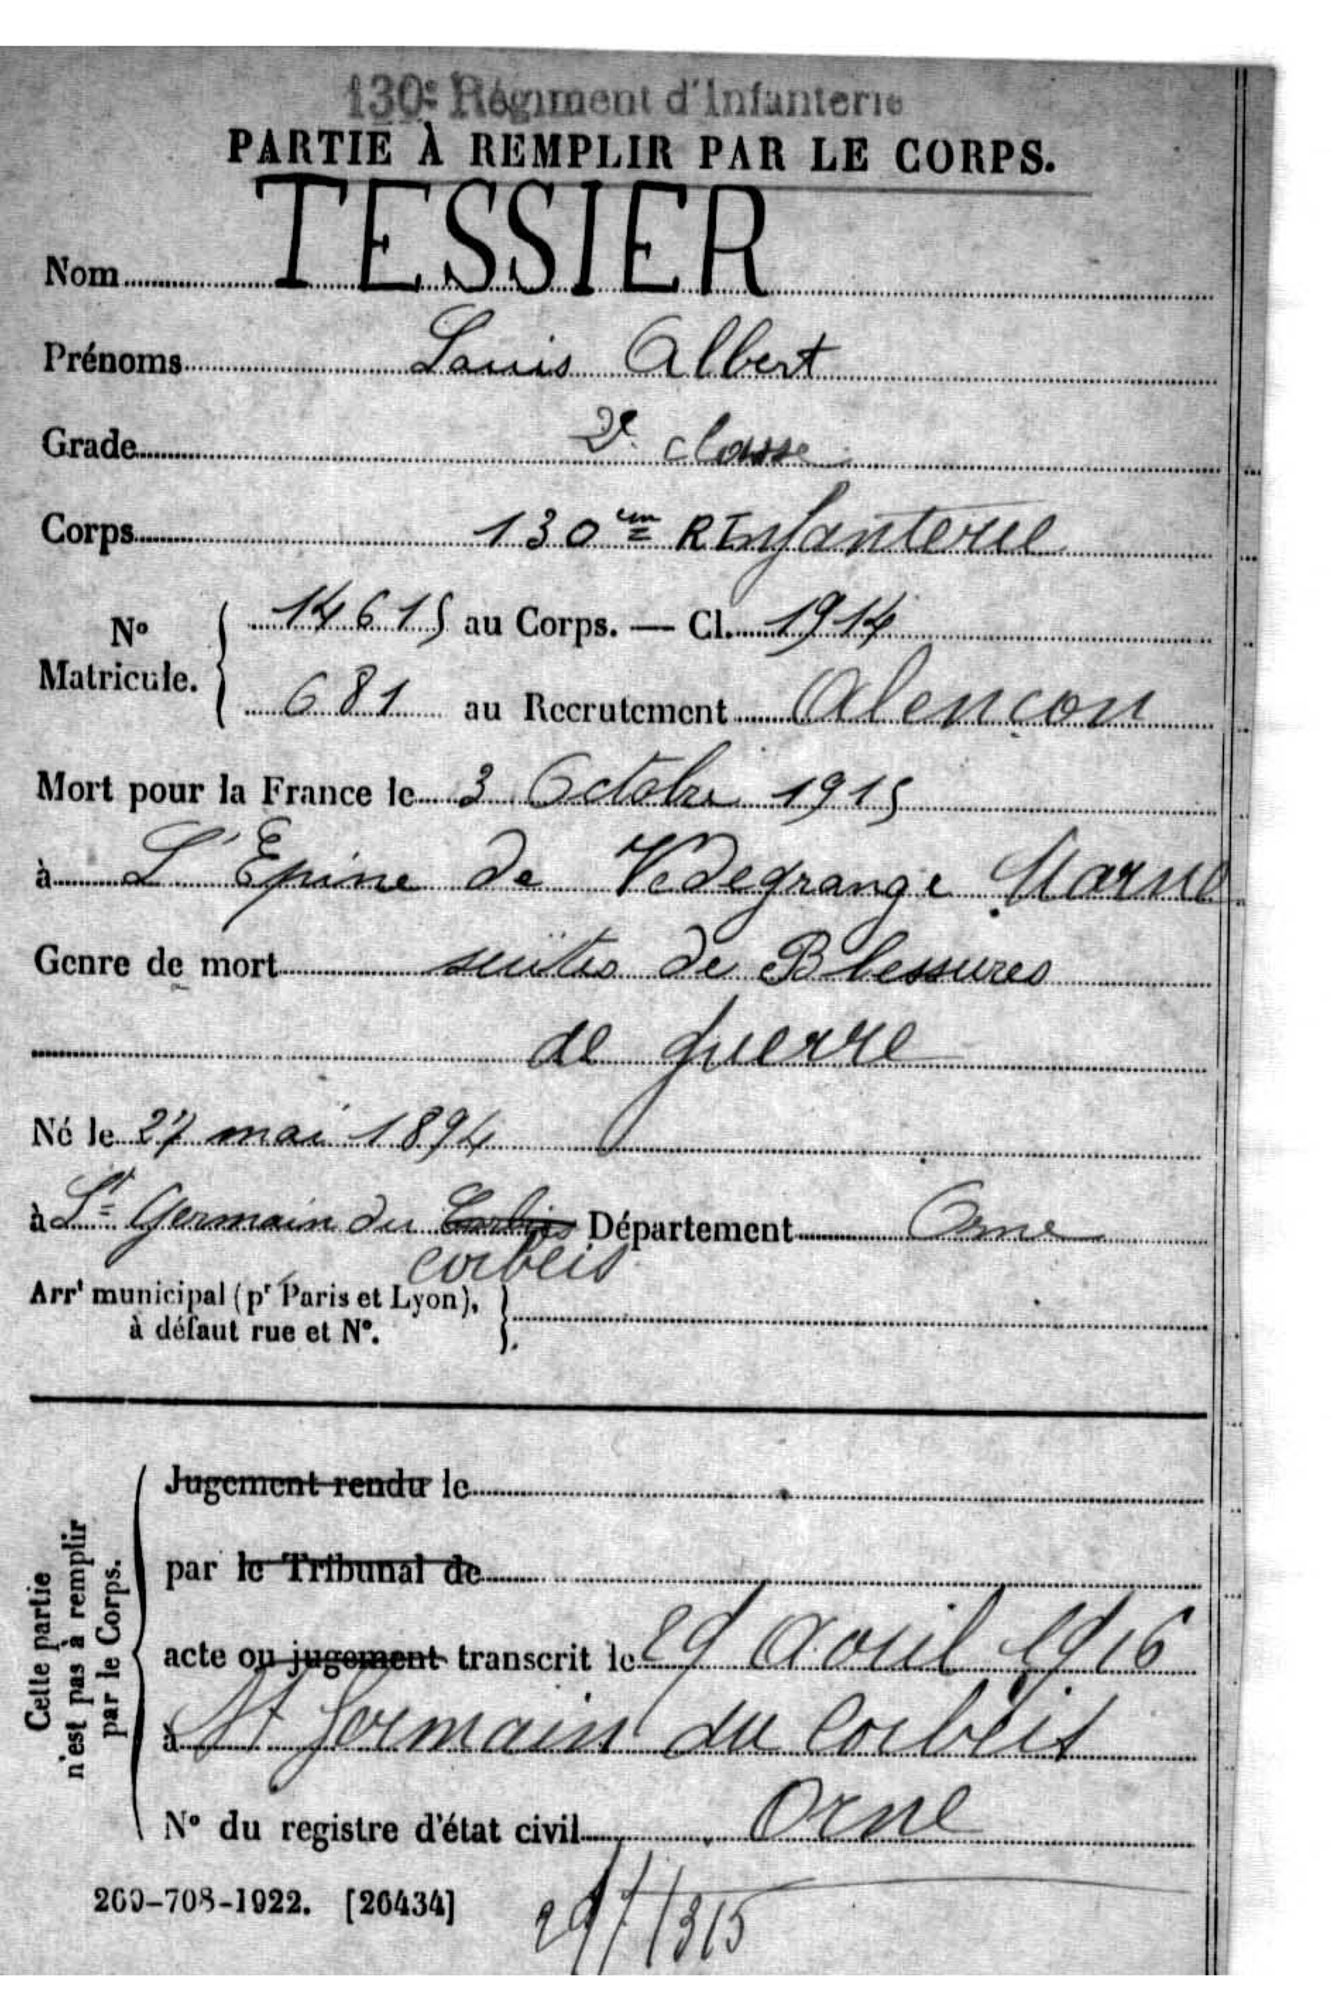 130e Régiment d'Infanterie
PARTIE À REMPLIR PAR LE CORPS.
Nom TESSIER
Prénoms Louis Albert
Grade 2e classe
Corps 130em R Infanterie
No Matricule. 14615 au Corps. — Cl. 1914
681 au Recrutement Alençon
Mort pour la France le 3 Octobre 1915
à L'Epine de Vedegrange Marne
Genre de mort suites de Blessures
de guerre
Né le 27 mai 1894
à St Germain du Département Orne
corbeis
Arrt municipal (pr Paris et Lyon),
à défaut rue et No.
Cette partie
n'est pas à remplir
par le Corps.
Jugement rendu le
par le Tribunal de
acte ou jugement transcrit le 29 avril 1916
à St Germain du Corbeis
No du registre d'état civil Orne
269-708-1922. [26434]